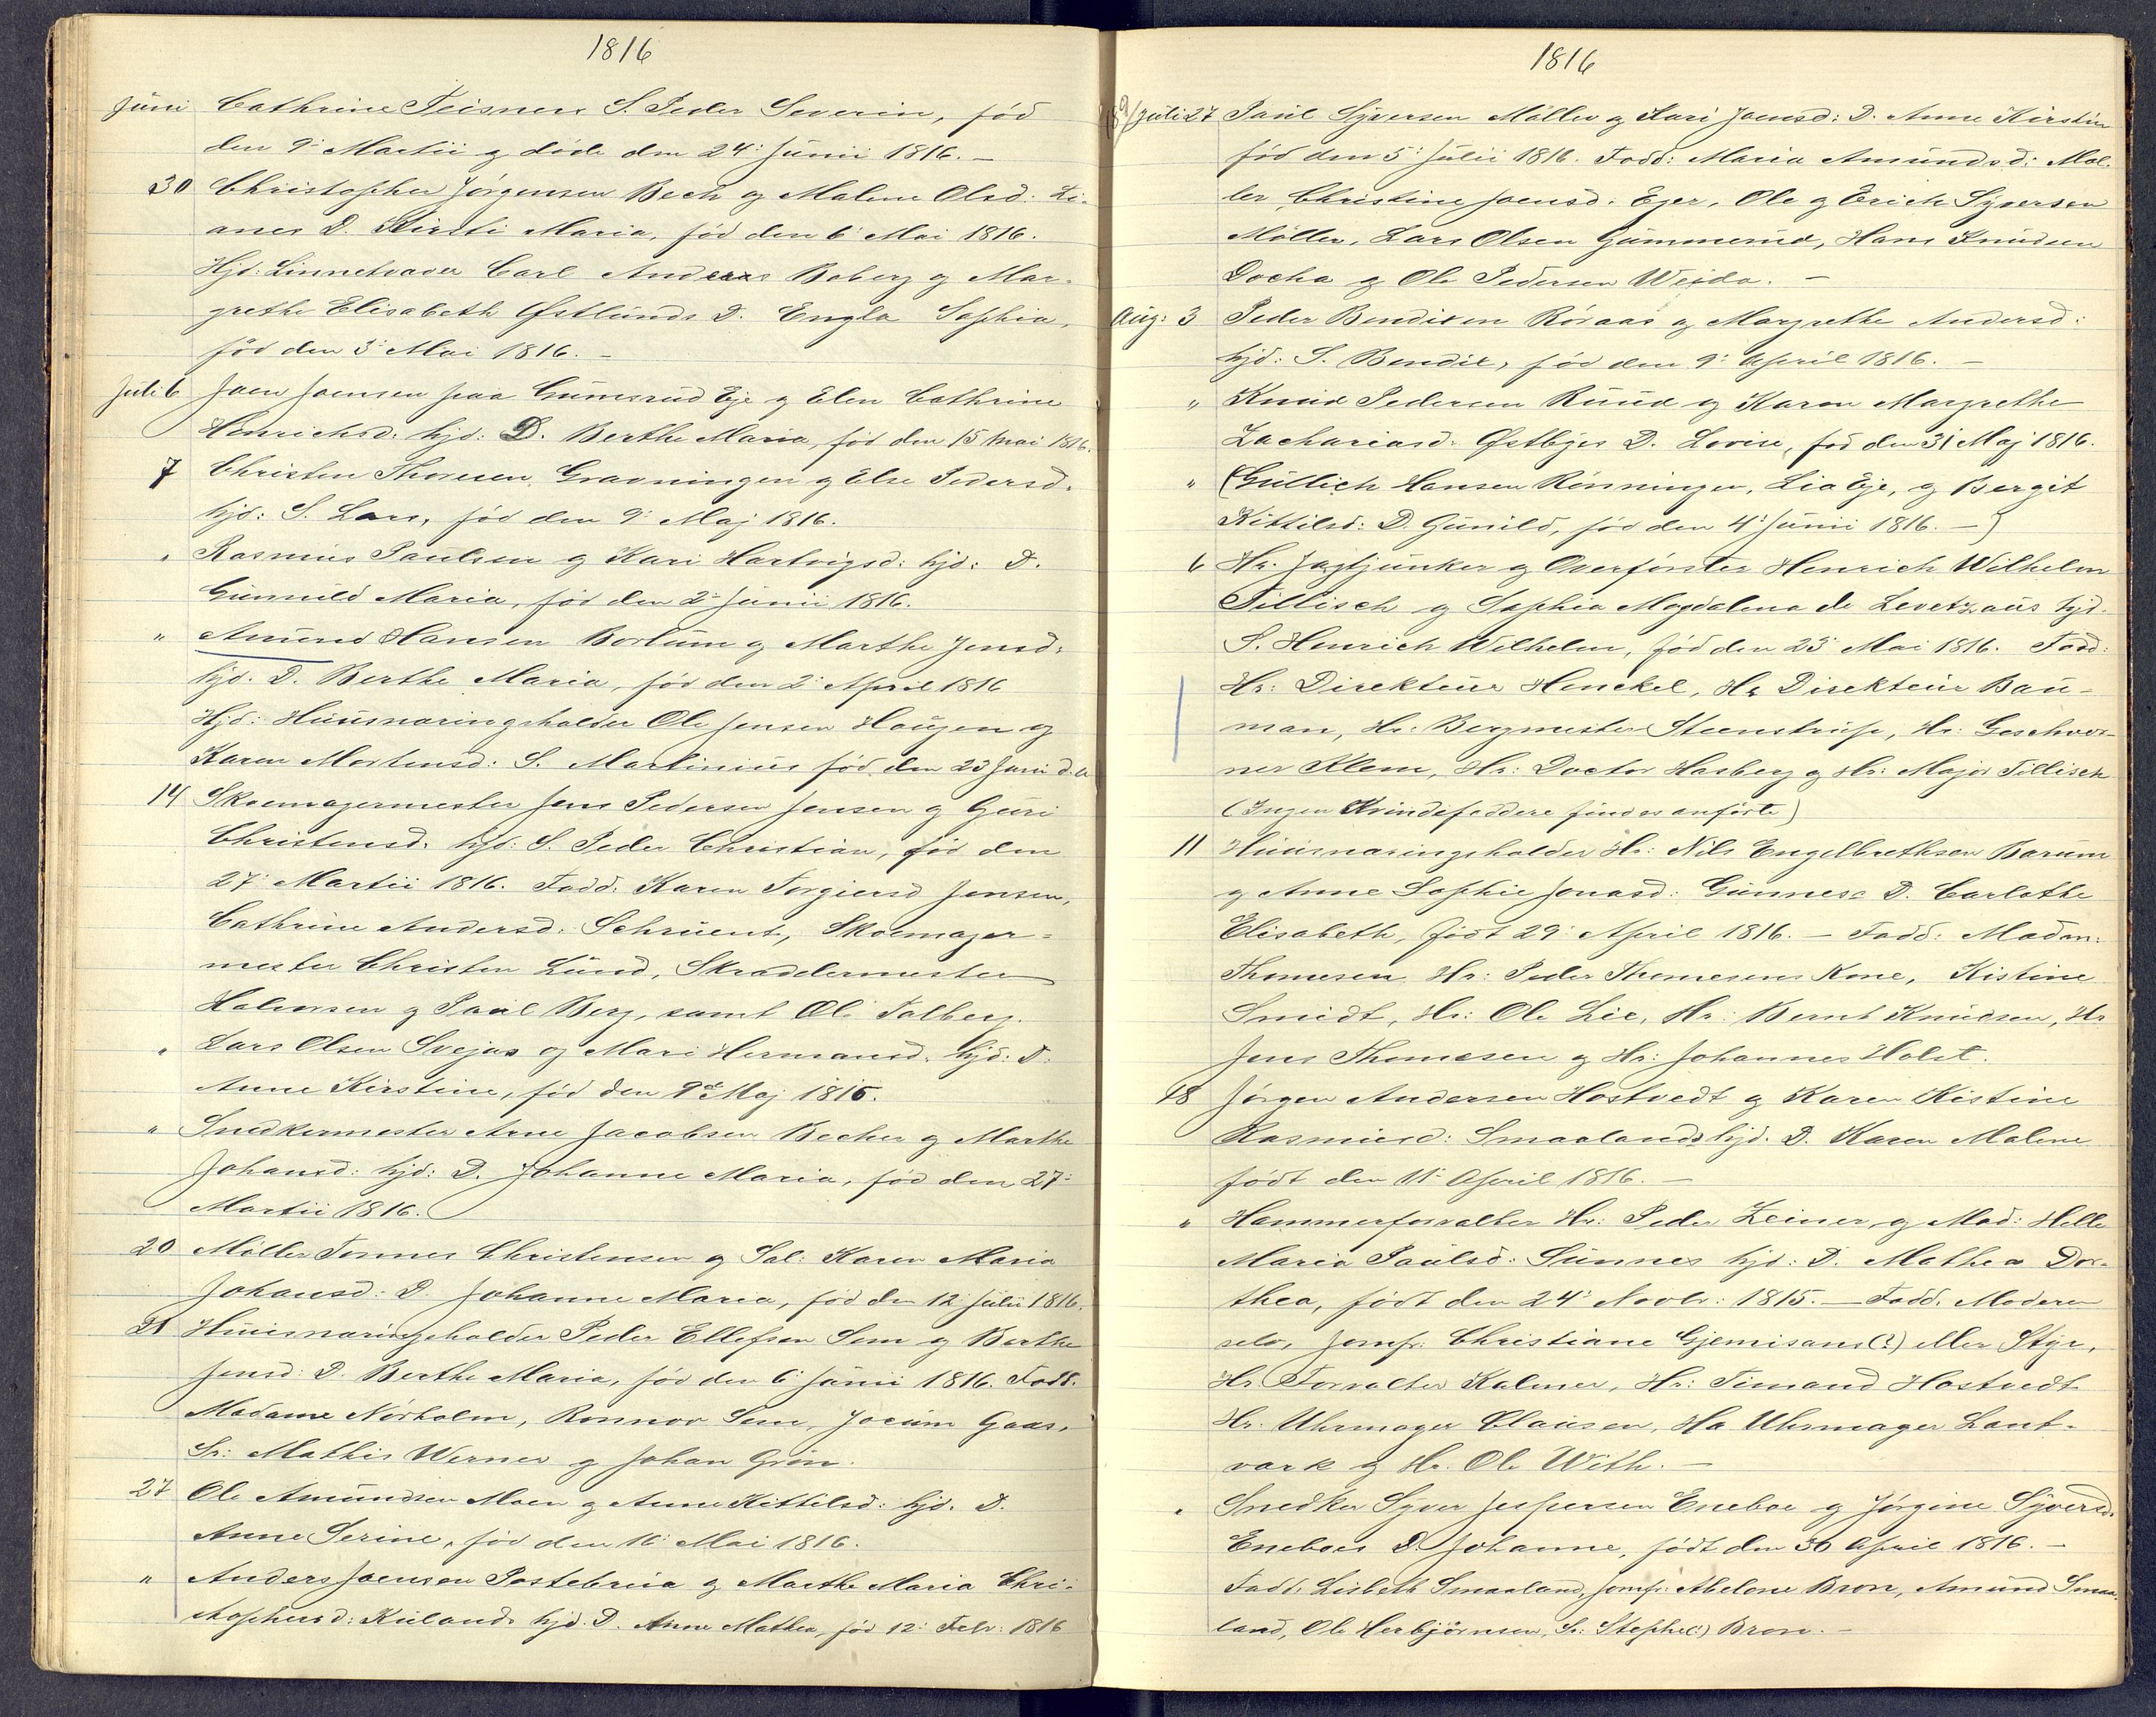 1816
Juni Cathrine Teisners S. Peder Severin, fød
den 9: Martii og døde den 24: Junii 1816. —
30 Christopher Jørgensen Bech og Malene Olsd: Li-
anes D. Kirsti Maria, fød den 6: Mai 1816.
Hjd: Linnetvæver Carl Anderas Boberg og Mar-
grethe Elisabeth Østlunds D. Engla Sophia,
fød den 3: Mai 1816. —
Juli 6 Joen Joensen paa Gumsrud Eje og Elen Cathrine
Henrichsd. hjd: D. Berthe Maria, fød den 15 Mai 1816.
7 Christen Thoresen Gravningen og Else Pedersd.
hjd: S. Lars, fød den 9: Maj 1816.
" Rasmus Paulsen og Kari Hartvigsd: hjd: D.
Gunnild Maria, fød den 2: Junii 1816.
" Amund Hansen Borlum og Marthe Jensd:
hjd. D. Berthe Maria, fød den 2: April 1816
Hjd: Huusnæringsholder Ole Jensen Haugen og
Karen Mortensd: S. Martinius fød den 23 Juni d. a
14 Skoemagermester Jens Pedersen Jensen og Guri
Christensd. hjd: S. Peder Christian, fød den
27: Martii 1816. Fadd. Karen Torgiersd Jensen,
Cathrine Andersd: Schruent, Skoemager-
mester Christen Lund, Skræddermester
Halvorsen og Paul Berg, samt Ole Talberg.
" Lars Olsen Svejas og Mari Hermansd. hjd: D.
Anne Kirstine, fød den 9de Maj 1816.
" Snedkermester Arne Jacobsen Becher og Marthe
Johansd: hjd: D. Johanne Maria, fød den 27:
Martii 1816.
20 Møller Tønnes Christensen og Sal: Karen Maria
Johansd: D. Johanne Maria, fød den 12: Julii 1816.
21 Huusnæringsholder Peder Ellefsen Sem og Berthe
Jensd: D. Berthe Maria, fød den 6: Junii 1816. Fadd.
Madame Nørholm, Ronnov Sem, Jocum Gaas,
Sr: Mathis Werner og Johan Grøn.
27 Ole Amundsen Moen og Anne Kittilsd: hjd. D.
Anne Serine, fød den 16: Mai 1816.
" Anders Joensen Postebrua og Marthe Maria Chri-
stophersd: Kulands hjd. D. Anne Mathea, fød 12: Febr: 1816
1816
Juli 27 Paul Syversen Møller og Kari Joensd: D. Anne Kirstin
fød den 5: Julii 1816. Fadd: Maria Amundsd: Møl-
ler, Christine Joensd. Ejer, Ole og Erich Syversen
Møller, Lars Olsen Gummerud, Hans Knudsen
Docka og Ole Pedersen Wejda. —
Aug: 3 Peder Bendixen Røraas og Margrethe Andersd:
hjd: S. Bendix, fød den 9: April 1816. —
" Knud Pedersen Ruud og Karen Margrethe
Zachariasd: Østbyes D. Lovise, fød den 31 Maj 1816.
" (Gullich Hansen Rønningen, Lia Eje, og Bergit
Kittilsd: D. Gunild, fød den 4: Junii 1816. —)
6 Hr. Jagtjunker og Overførster Henrich Wilhelm
Tillisch og Sophia Magdalena de Levetzaus hjd.
S. Henrich Wilhelm, fød den 23: Mai 1816. Fadd:
Hr: Direkteur Henckel, Hr Direkteur Bau-
man, Hr: Bergmester Steenstrup, Hr: Geschwor-
ner Klem, Hr: Doctor Hasberg og Hr: Major Tillisch
(Ingen Kvindefaddere findes anførte)
11 Huusnæringsholder Hr: Nils Engelbrethsen Barum
og Anne Sophie Jonasd: Gunnes D. Carlothe
Elisabeth, født 29: April 1816. — Fadd: Madm:
Thomesen, Hr: Peder Thomesens Kone, Kistine
Smidt, Hr: Ole Lie, Hr: Bernt Knudsen, Hr
Jens Thomesen og Hr: Johannes Holst.
18 Jørgen Andersen Hostvedt og Karen Kistine
Rasmusd: Smaalands hjd. D. Karen Malene
født den 11: April 1816. —
" Hammerforvalter Hr: Peder Zeiner og Mad: Helle
Maria Paulsd: Sunnes hjd: D. Mathea Dor-
thea, født den 24: Novbr: 1815. — Fadd. Moderen
selv, Jomfr: Christiane Gjemisans(?) eller Styr,
Hr. Forvalter Kalmer, Hr: Timand Hostvedt
Hr. Uhrmager Clausen, Hr Uhrmager Lant-
vark og Hr. Ole With. —
" Snedker Syver Jespersen Eneboe og Jørgine Syversd.
Eneboes D. Johanne, født den 30 April 1816. —
Fadd. Lisbeth Smaaland, Jomfr: Abelone Bron, Amund Smaa-
land, Ole Herbjørnsen, Sr: Stephe(?) Bron. —